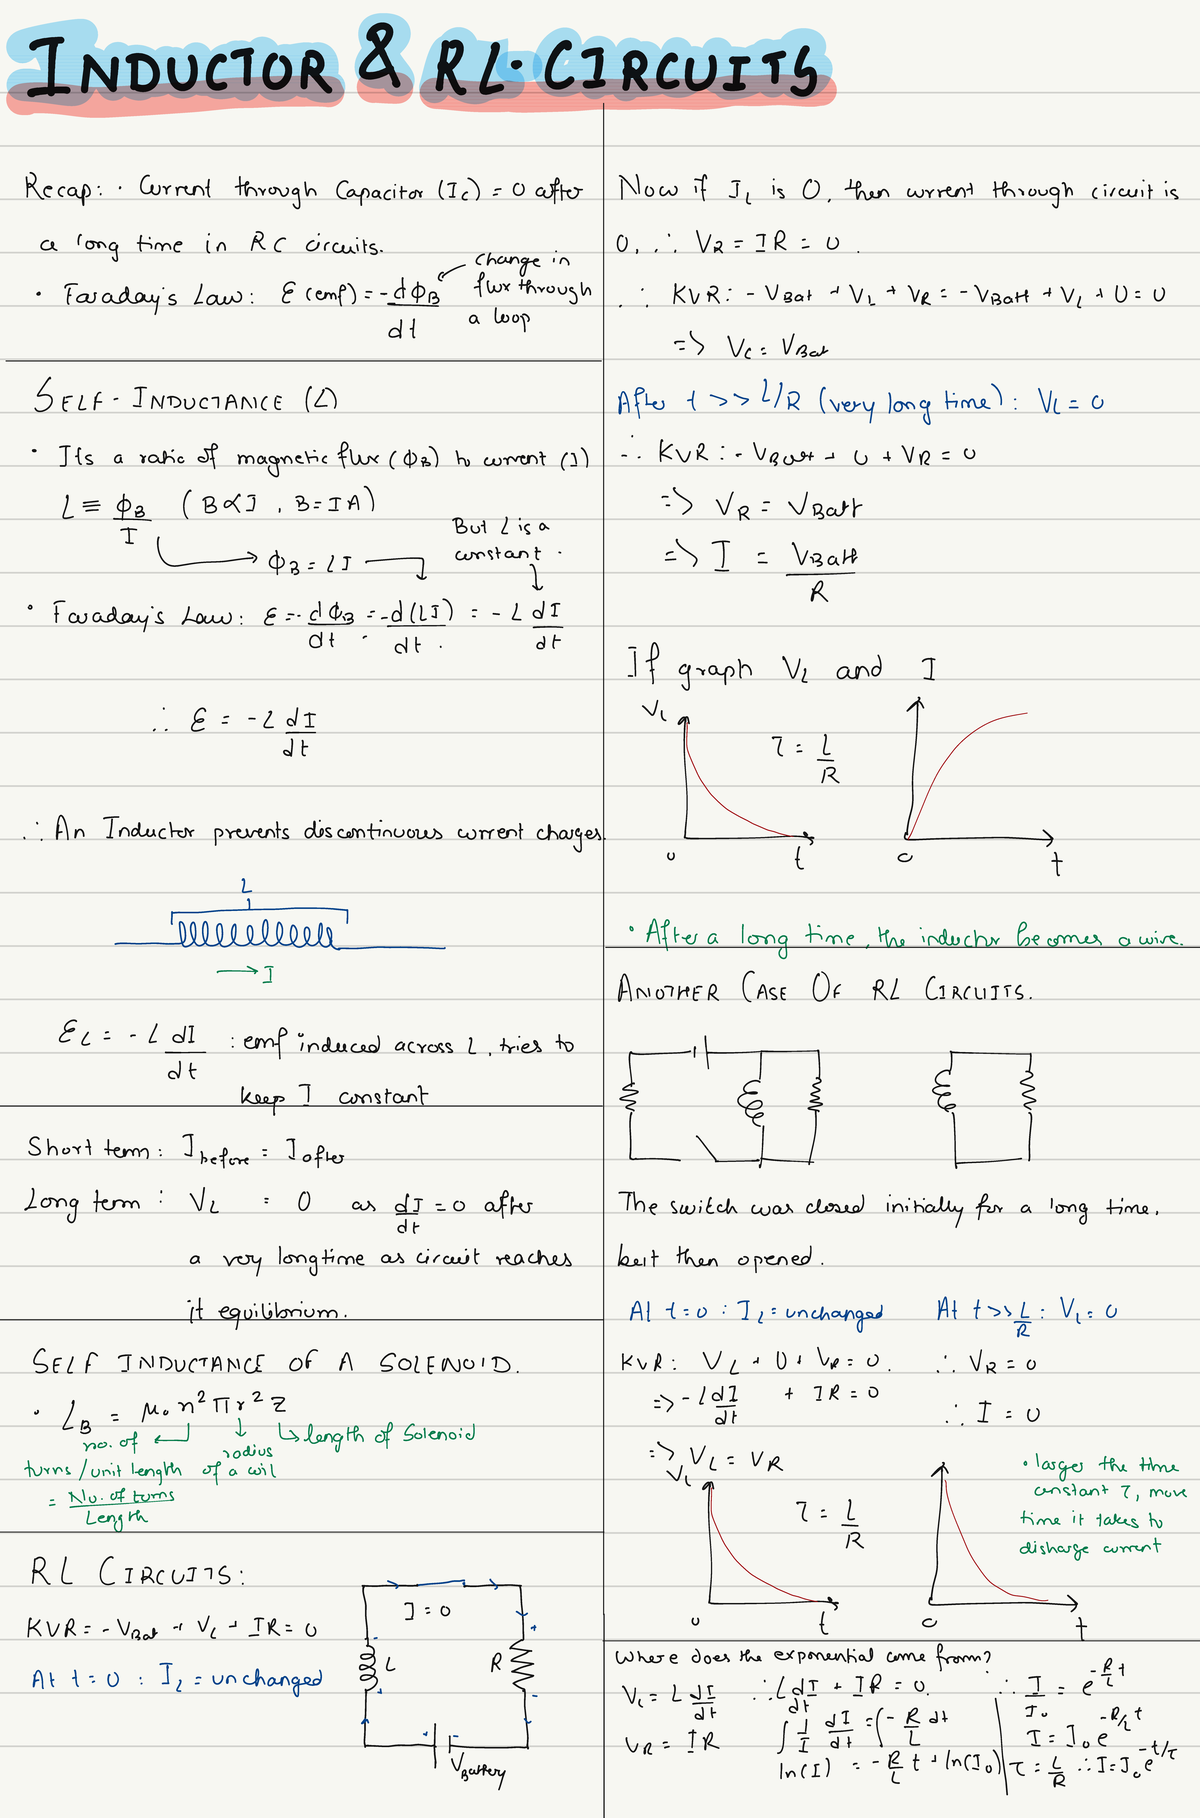 INDUCTOR & RL-CIRCUITS
Recap: · Current through Capacitor (Ic) = 0 after
a long time in RC circuits.
· Faraday's Law: ε(emf) = -dΦB/dt
change in
flux through
a loop
SELF-INDUCTANCE (L)
· Its a ratio of magnetic flux (ΦB) to current (I)
L ≡ ΦB/I (B∝I, B=IA)
→ ΦB = LI
But L is a
constant.
· Faraday's Law: ε = -dΦB/dt = -d(LI)/dt = -L dI/dt
∴ ε = -L dI/dt
∴ An Inductor prevents discontinuous current changes.
L
→ I
εL = -L dI/dt : emf induced across L, tries to
keep I constant
Short term: Ibefore = Iafter
Long term: VL = 0 as dI/dt = 0 after
a very longtime as circuit reaches
it equilibrium.
SELF INDUCTANCE OF A SOLENOID.
· LB = μ₀ n² π r² z
no. of
turns/unit length
= No. of turns/Length
radius
of a coil
length of Solenoid
RL CIRCUITS:
KVR = -VBat + VL + IR = 0
At t=0 : IL = unchanged
I = 0
L
R
+
-
VBattery
Now if IL is 0, then current through circuit is
0, ∴ VR = IR = 0.
∴ KVR: -VBat + VL + VR = -VBatt + VL + 0 = 0
=> VL = VBat
After t >> L/R (very long time): VL = 0
∴ KVR: -VBatt + 0 + VR = 0
=> VR = VBatt
=> I = VBatt/R
If graph VL and I
VL
τ = L/R
0
t
0
t
· After a long time, the inductor becomes a wire.
ANOTHER CASE OF RL CIRCUITS.
The switch was closed initially for a long time,
but then opened.
At t=0 : IL = unchanged
At t>>L/R : VL = 0
KVR: VL + 0 + VR = 0.
∴ VR = 0
=> -LdI/dt + IR = 0
∴ I = 0
=> VL = VR
VL
τ = L/R
0
t
0
t
· larger the time
constant τ, more
time it takes to
discharge current
Where does the exponential come from?
VL = L dI/dt
∴ L dI/dt + IR = 0.
∴ I/I₀ = e^(-R/L t)
VR = IR
∫ 1/I dI/dt = ∫ -R/L dt
I = I₀e^(-R/L t)
ln(I) = -R/L t + ln(I₀)
τ = L/R ∴ I = I₀e^(-t/τ)